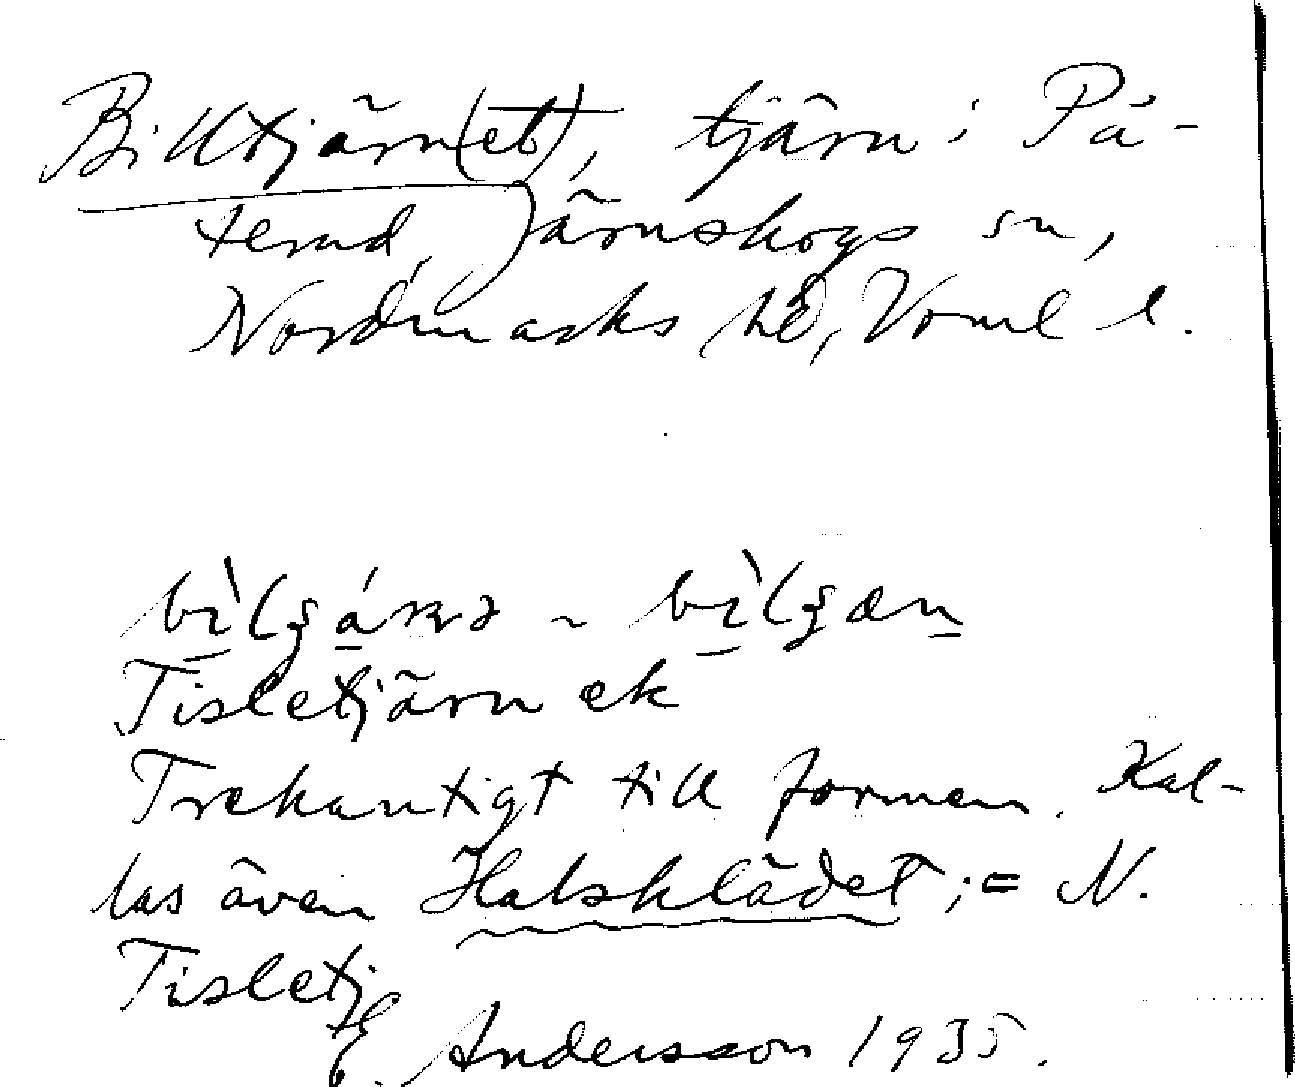 Billtjärn(et), tjärn i På-
terud, Järnskogs sn,
Nordmarks hd, Värml l.
Tisletjärn ek
Trekantigt till formen. Kal-
las även Halsklädet; = N.
Tisletj
E. Andersson 1935.